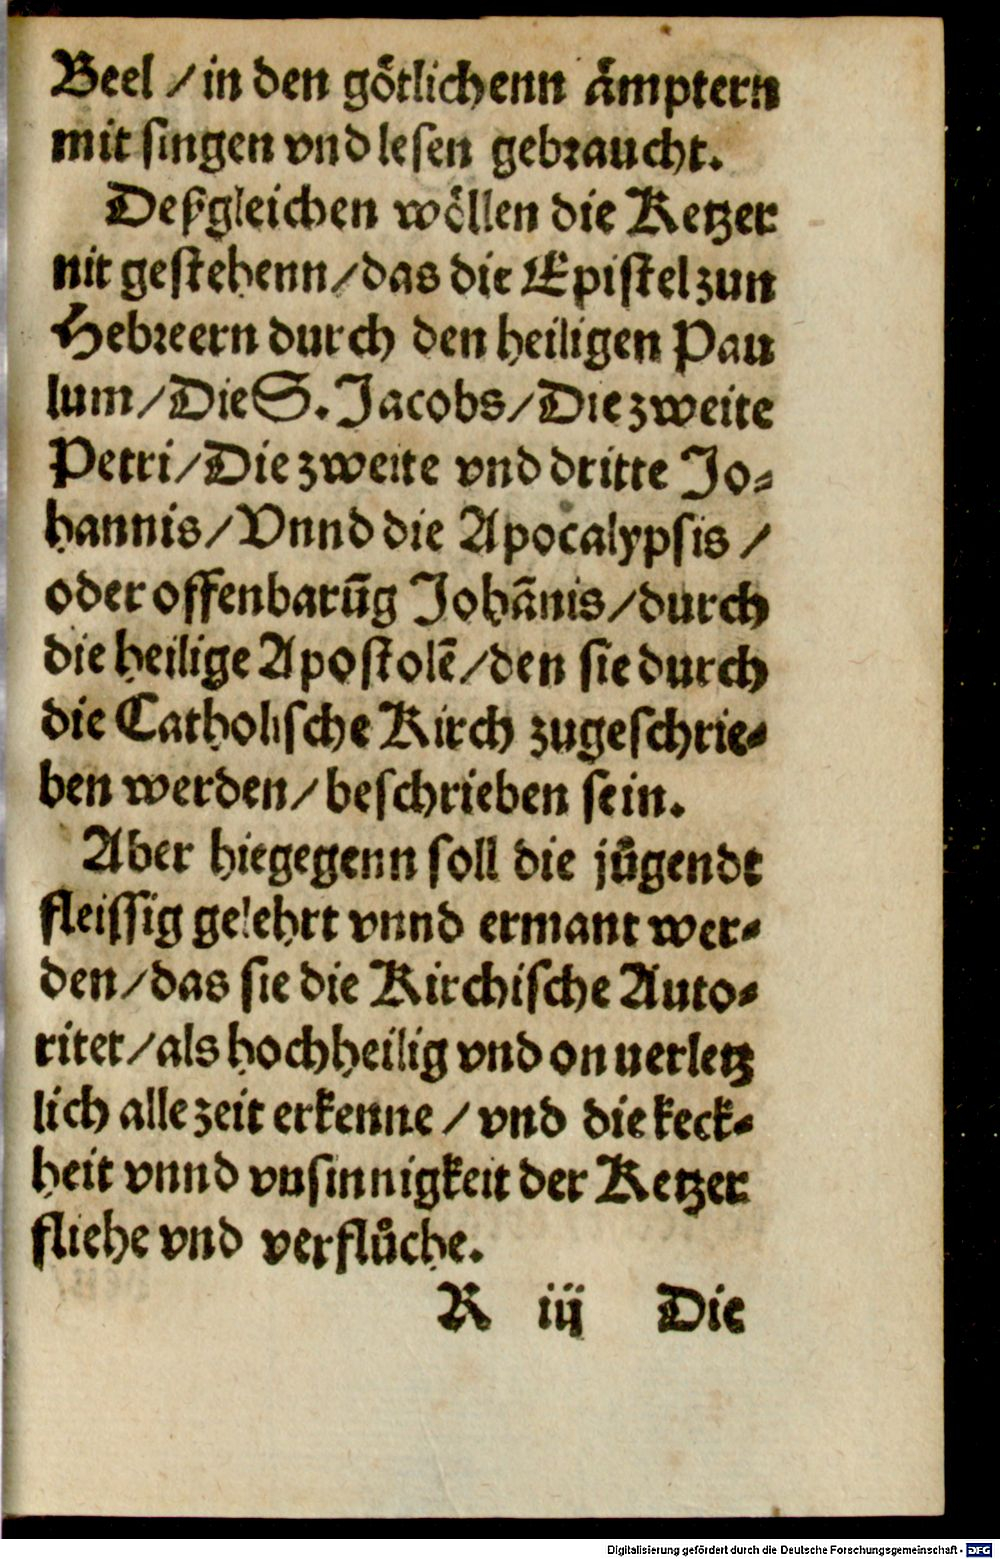 Beel / in den goͤtlichenn aͤmptern
mit singen vnd lesen gebraucht.
Deßgleichen woͤllen die Ketzer
nit gestehenn / das die Epistel zun
Hebreern durch den heiligen Pau
lum / Die S. Jacobs / Die zweite
Petri / Die zweite vnd dritte Jo⸗
hannis / Vnnd die Apocalypsis /
oder offenbarūg Johānis / durch
die heilige Apostolē / den sie durch
die Catholische Kirch zugeschrie⸗
ben werden / beschrieben sein.
Aber hiegegenn soll die juͤgendt
fleissig gelehrt vnnd ermant wer⸗
den / das sie die Kirchische Auto⸗
ritet / als hochheilig vnd on uerletz
lich alle zeit erkenne / vnd die keck⸗
heit vnnd vnsinnigkeit der Ketzer
fliehe vnd verfluͤche.
R iij Die
Digitalisierung gefördert durch die Deutsche Forschungsgemeinschaft - DFG